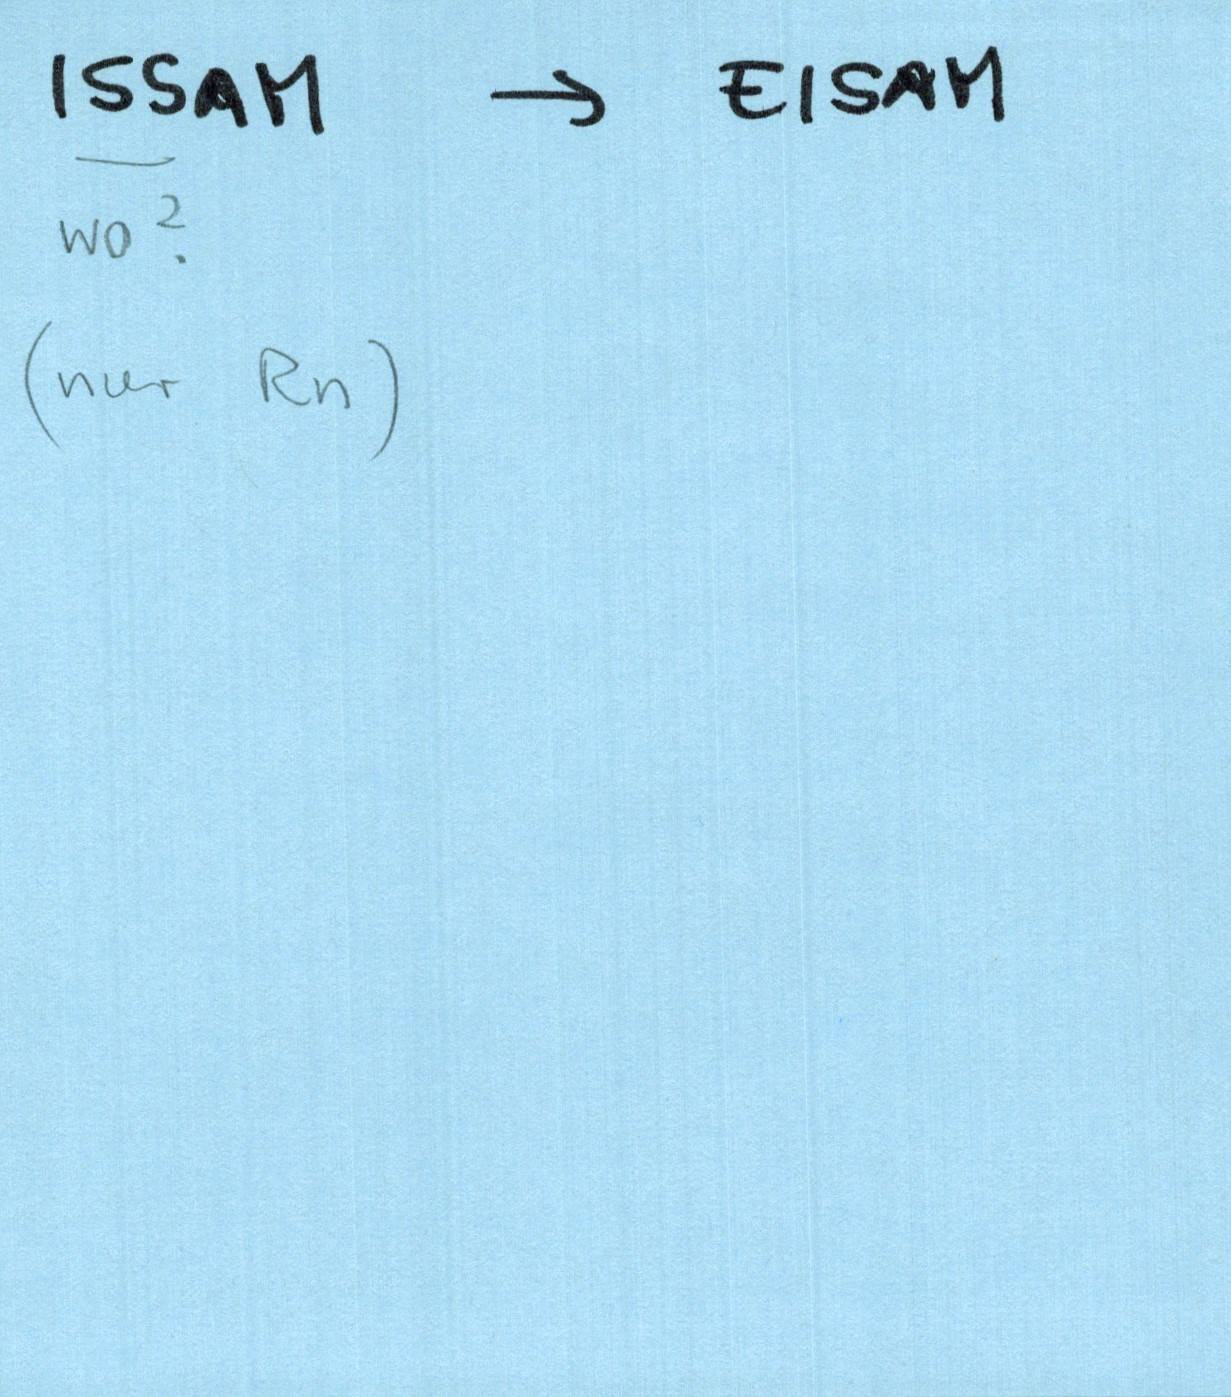 ISSAM → EISAM
wo?
(nur Rn)